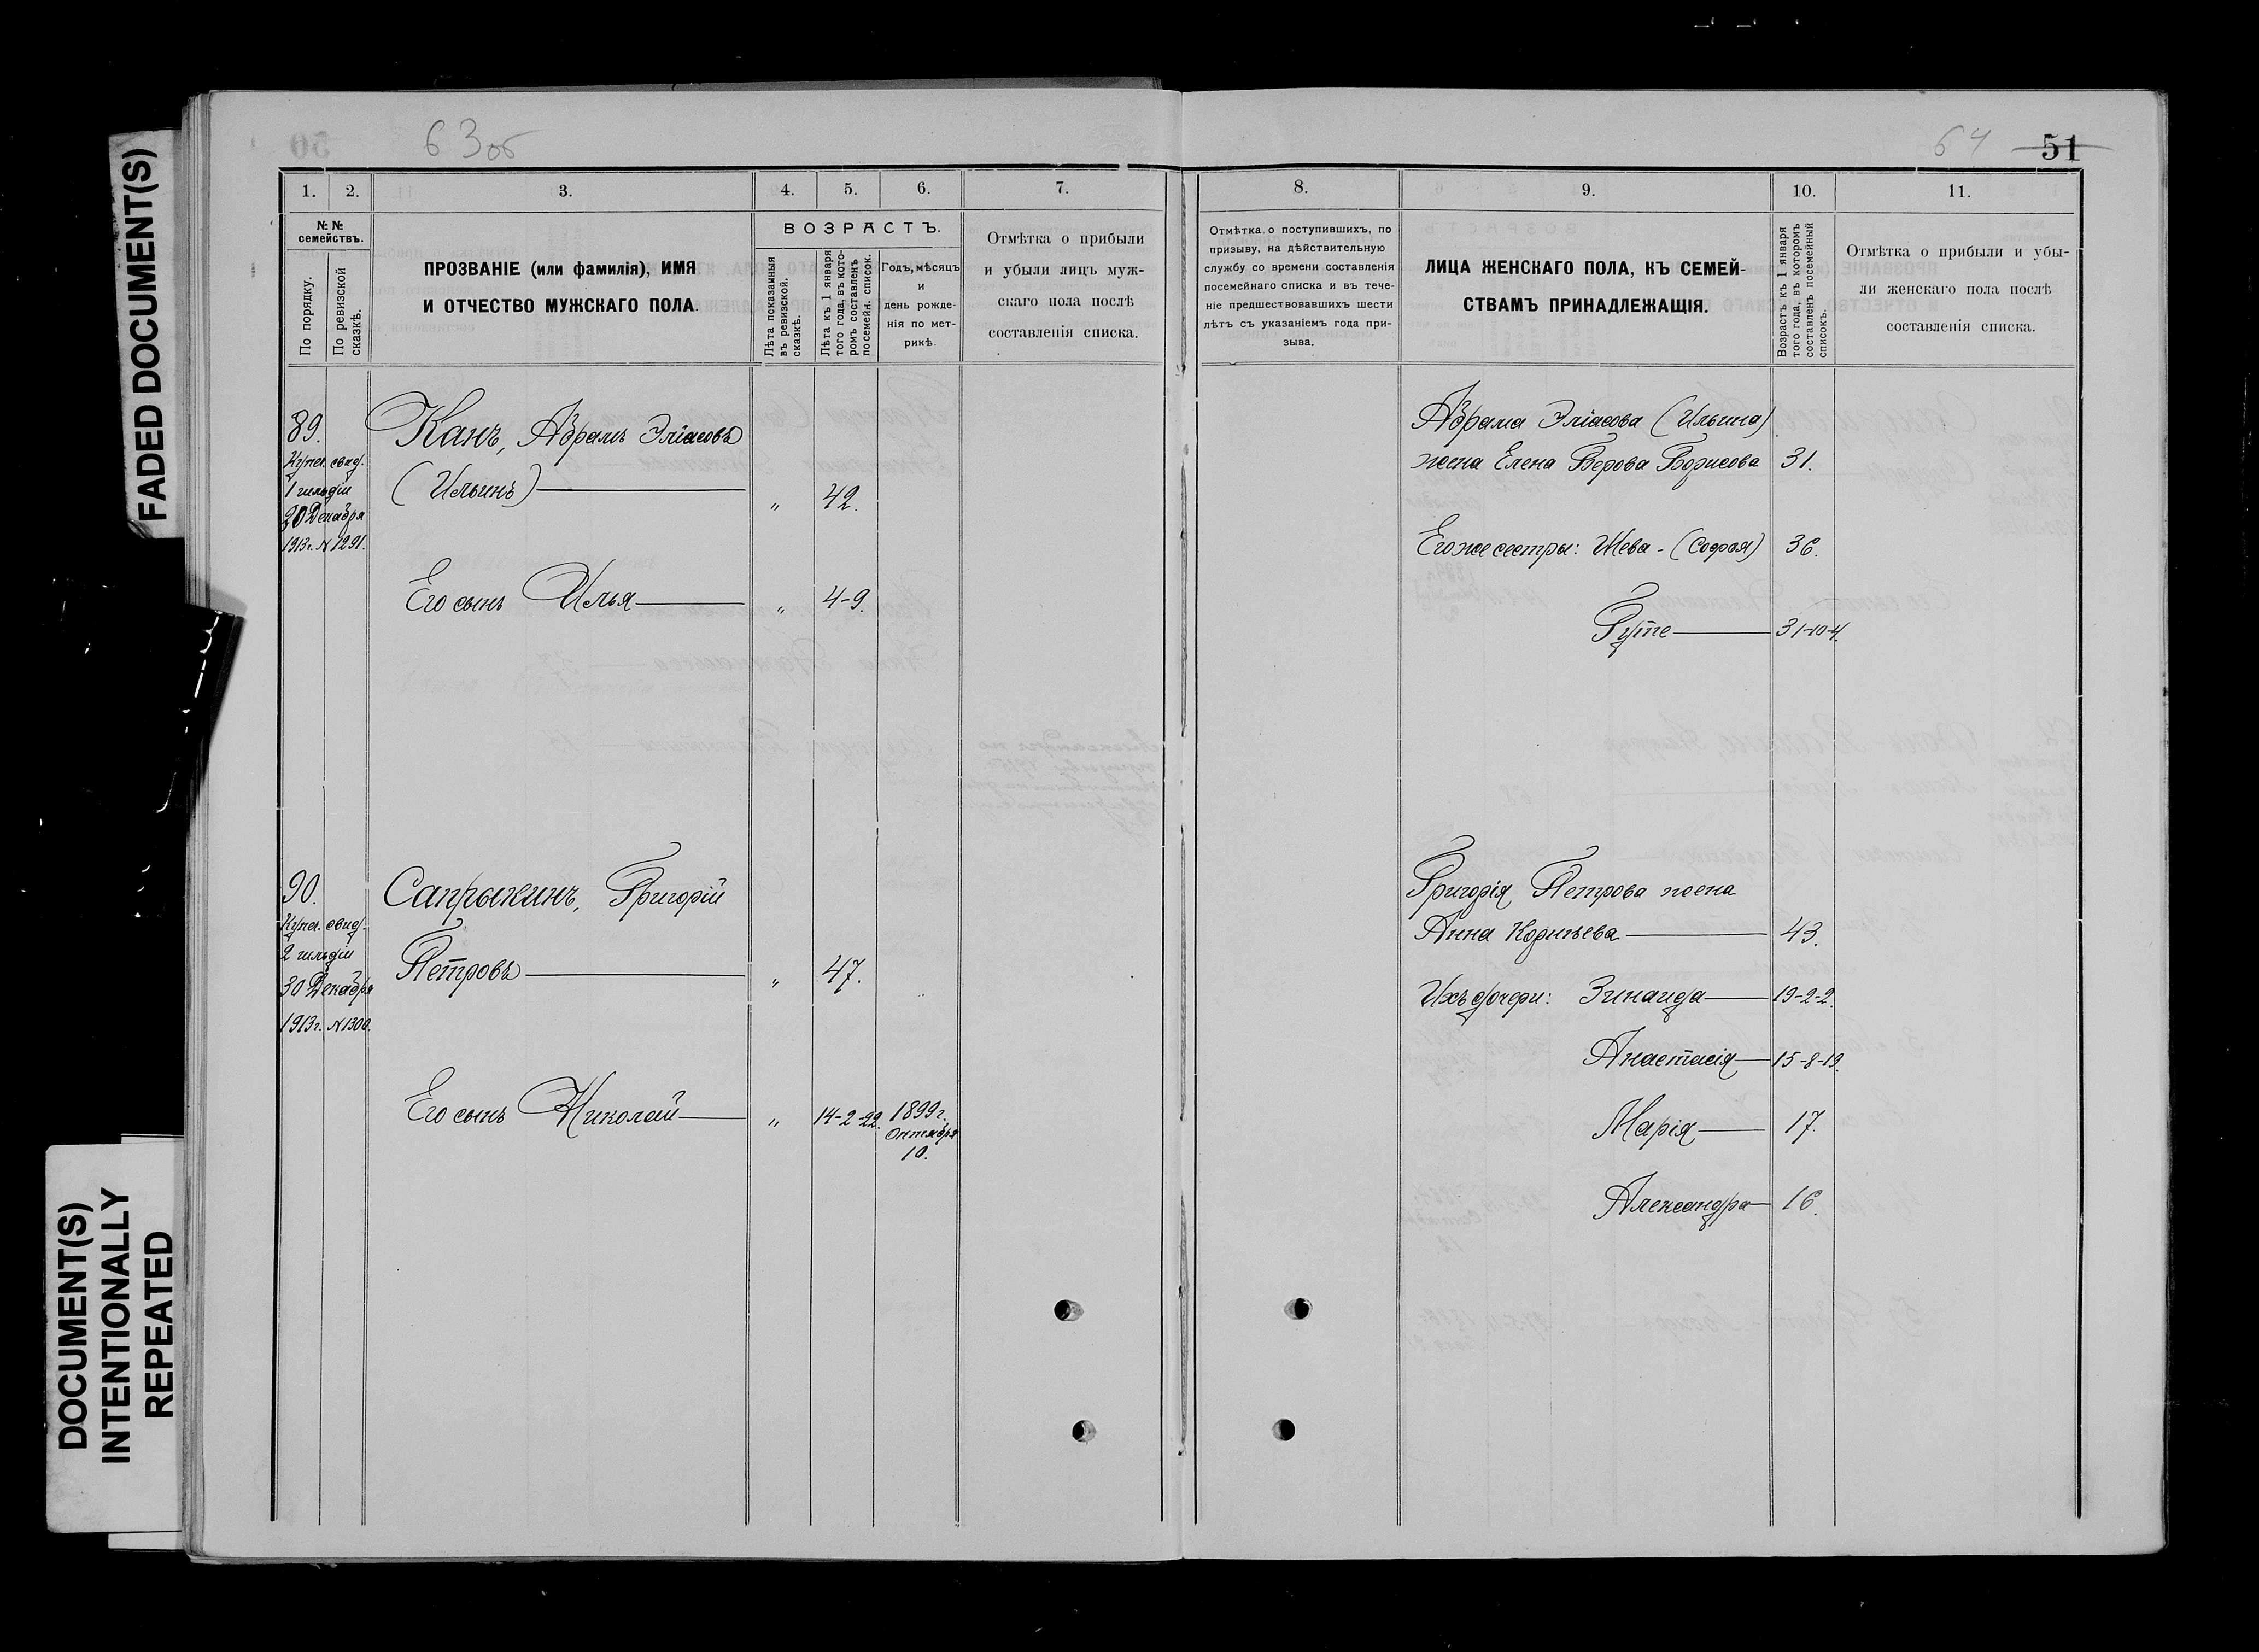 FADED DOCUMENT(S)
DOCUMENT(S)
INTENTIONALLY
REPEATED
63об
64 51
1. 2. 3. 4. 5. 6. 7.
№ №
семействъ.
По порядку.
По ревизской
сказкѣ.
ПРОЗВАНІЕ (или фамилія), ИМЯ
И ОТЧЕСТВО МУЖСКАГО ПОЛА.
ВОЗРАСТЪ.
Лѣта показанныя
въ ревизской.
сказкѣ.
Лѣта къ 1 января
того года, въ кото-
ромъ составленъ
посемейн. список.
Годъ, мѣсяцъ
и
день рожде-
нія по мет-
рикѣ.
Отмѣтка о прибыли
и убыли лицъ муж-
скаго пола послѣ
составленія списка.
89.
Купеч. свид.
1 гильдіи
20 Декабря
1913г. N 1291.
Канъ, Абрамъ Эліасовъ
(Ильинъ) „ 42.
Его сынъ Илья „ 4-9.
90.
Купеч. свид.
2 гильдіи
30 Декабря
1913г. N 1300.
Сапрыкинъ, Григорій
Петровъ „ 47.
Его сынъ Николай „ 14-2-22. 1899г.
Октября
10.
8. 9. 10. 11.
Отмѣтка о поступившихъ, по
призыву, на дѣйствительную
службу со времени составленія
посемейнаго списка и въ тече-
ніе предшествовавшихъ шести
лѣтъ съ указаніемъ года при-
зыва.
ЛИЦА ЖЕНСКАГО ПОЛА, КЪ СЕМЕЙ-
СТВАМЪ ПРИНАДЛЕЖАЩІЯ.
Возрастъ къ 1 января
того года, въ которомъ
составленъ посемейный
списокъ.
Отмѣтка о прибыли и убы-
ли женскаго пола послѣ
составленія списка.
Абрама Эліасова (Ильина)
жена Елена Берова Борисова 31.
Его же сестры: Шева - (Софія) 36.
Гуте 31-10-4.
Григорія Петрова жена
Анна Корнѣева 43.
Ихъ дочери: Зинаида 19-2-2.
Анастасія 15-8-19.
Марія 17.
Александра 16.